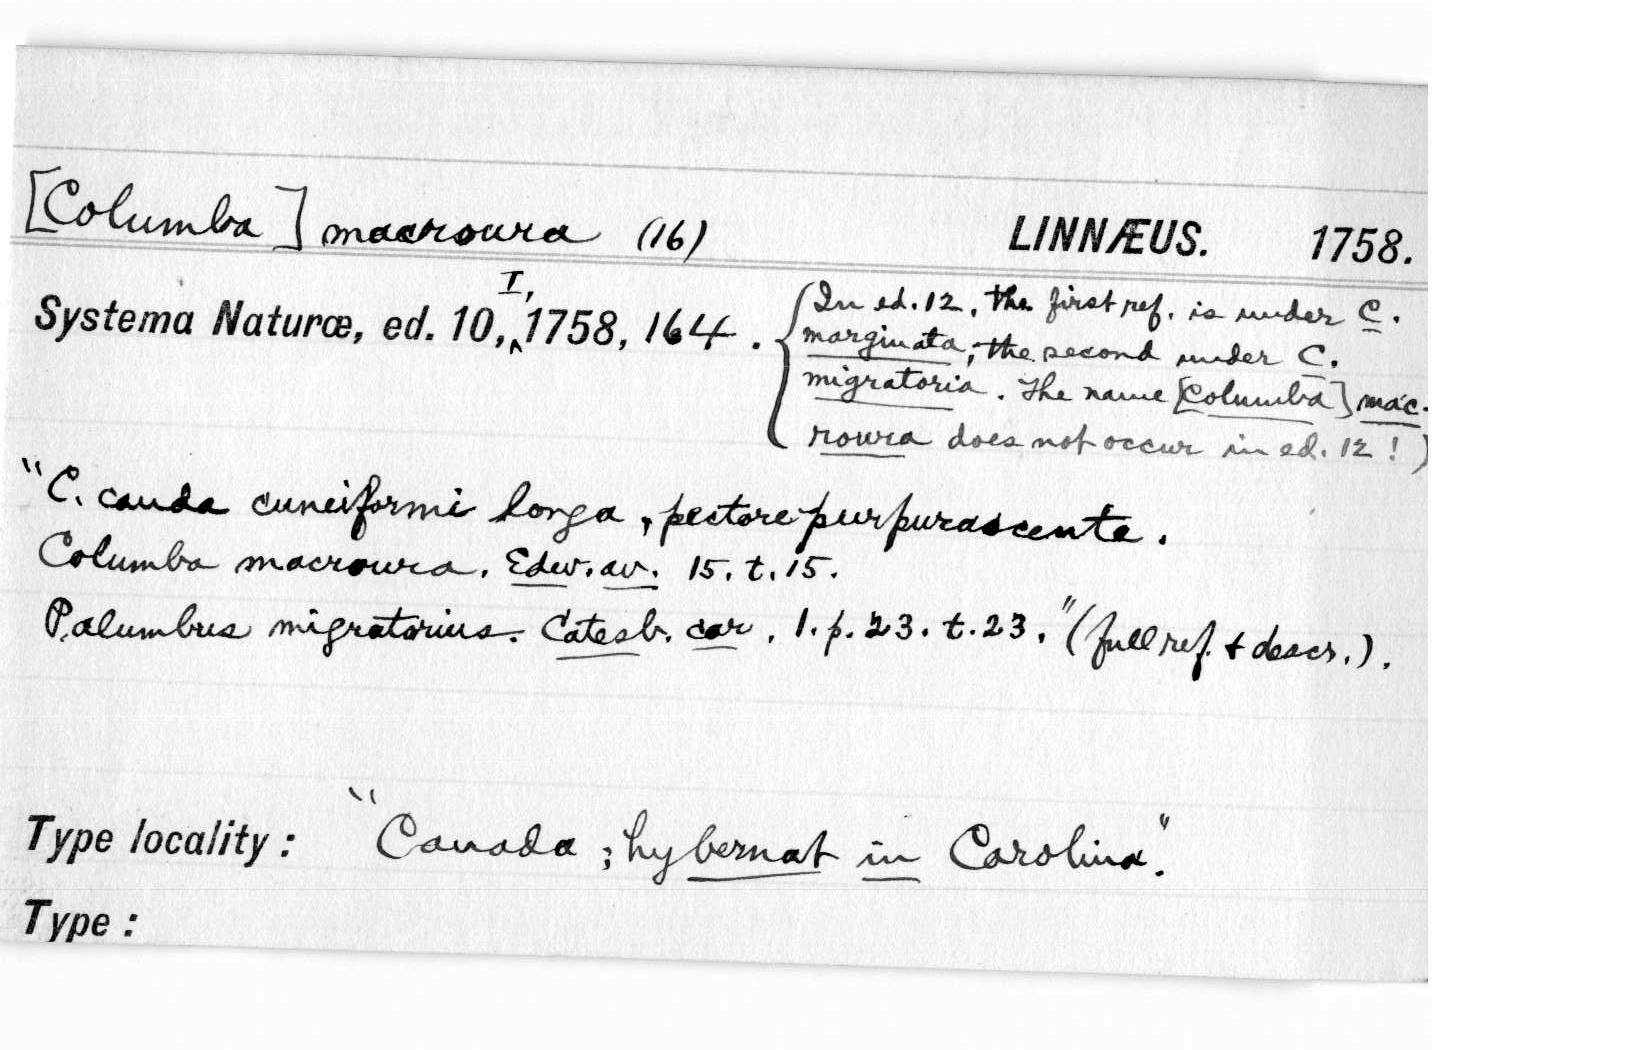 [Columba] macroura (16) LINNÆUS. 1758.
Systema Naturæ, ed. 10, I, 1758, 164.
(In ed. 12, the first ref. is under C.
marginata; the second under C.
migratoria. The name [Columba] mac-
roura does not occur in ed. 12!)
"C. cauda cuneiformi longa, pectore purpurascente.
Columba macroura. Edw. av. 15. t. 15.
Palumbus migratorius. Catesb. car. 1. p. 23. t. 23." (full ref. + descr.).
Type locality: "Canada; hybernat in Carolina".
Type: